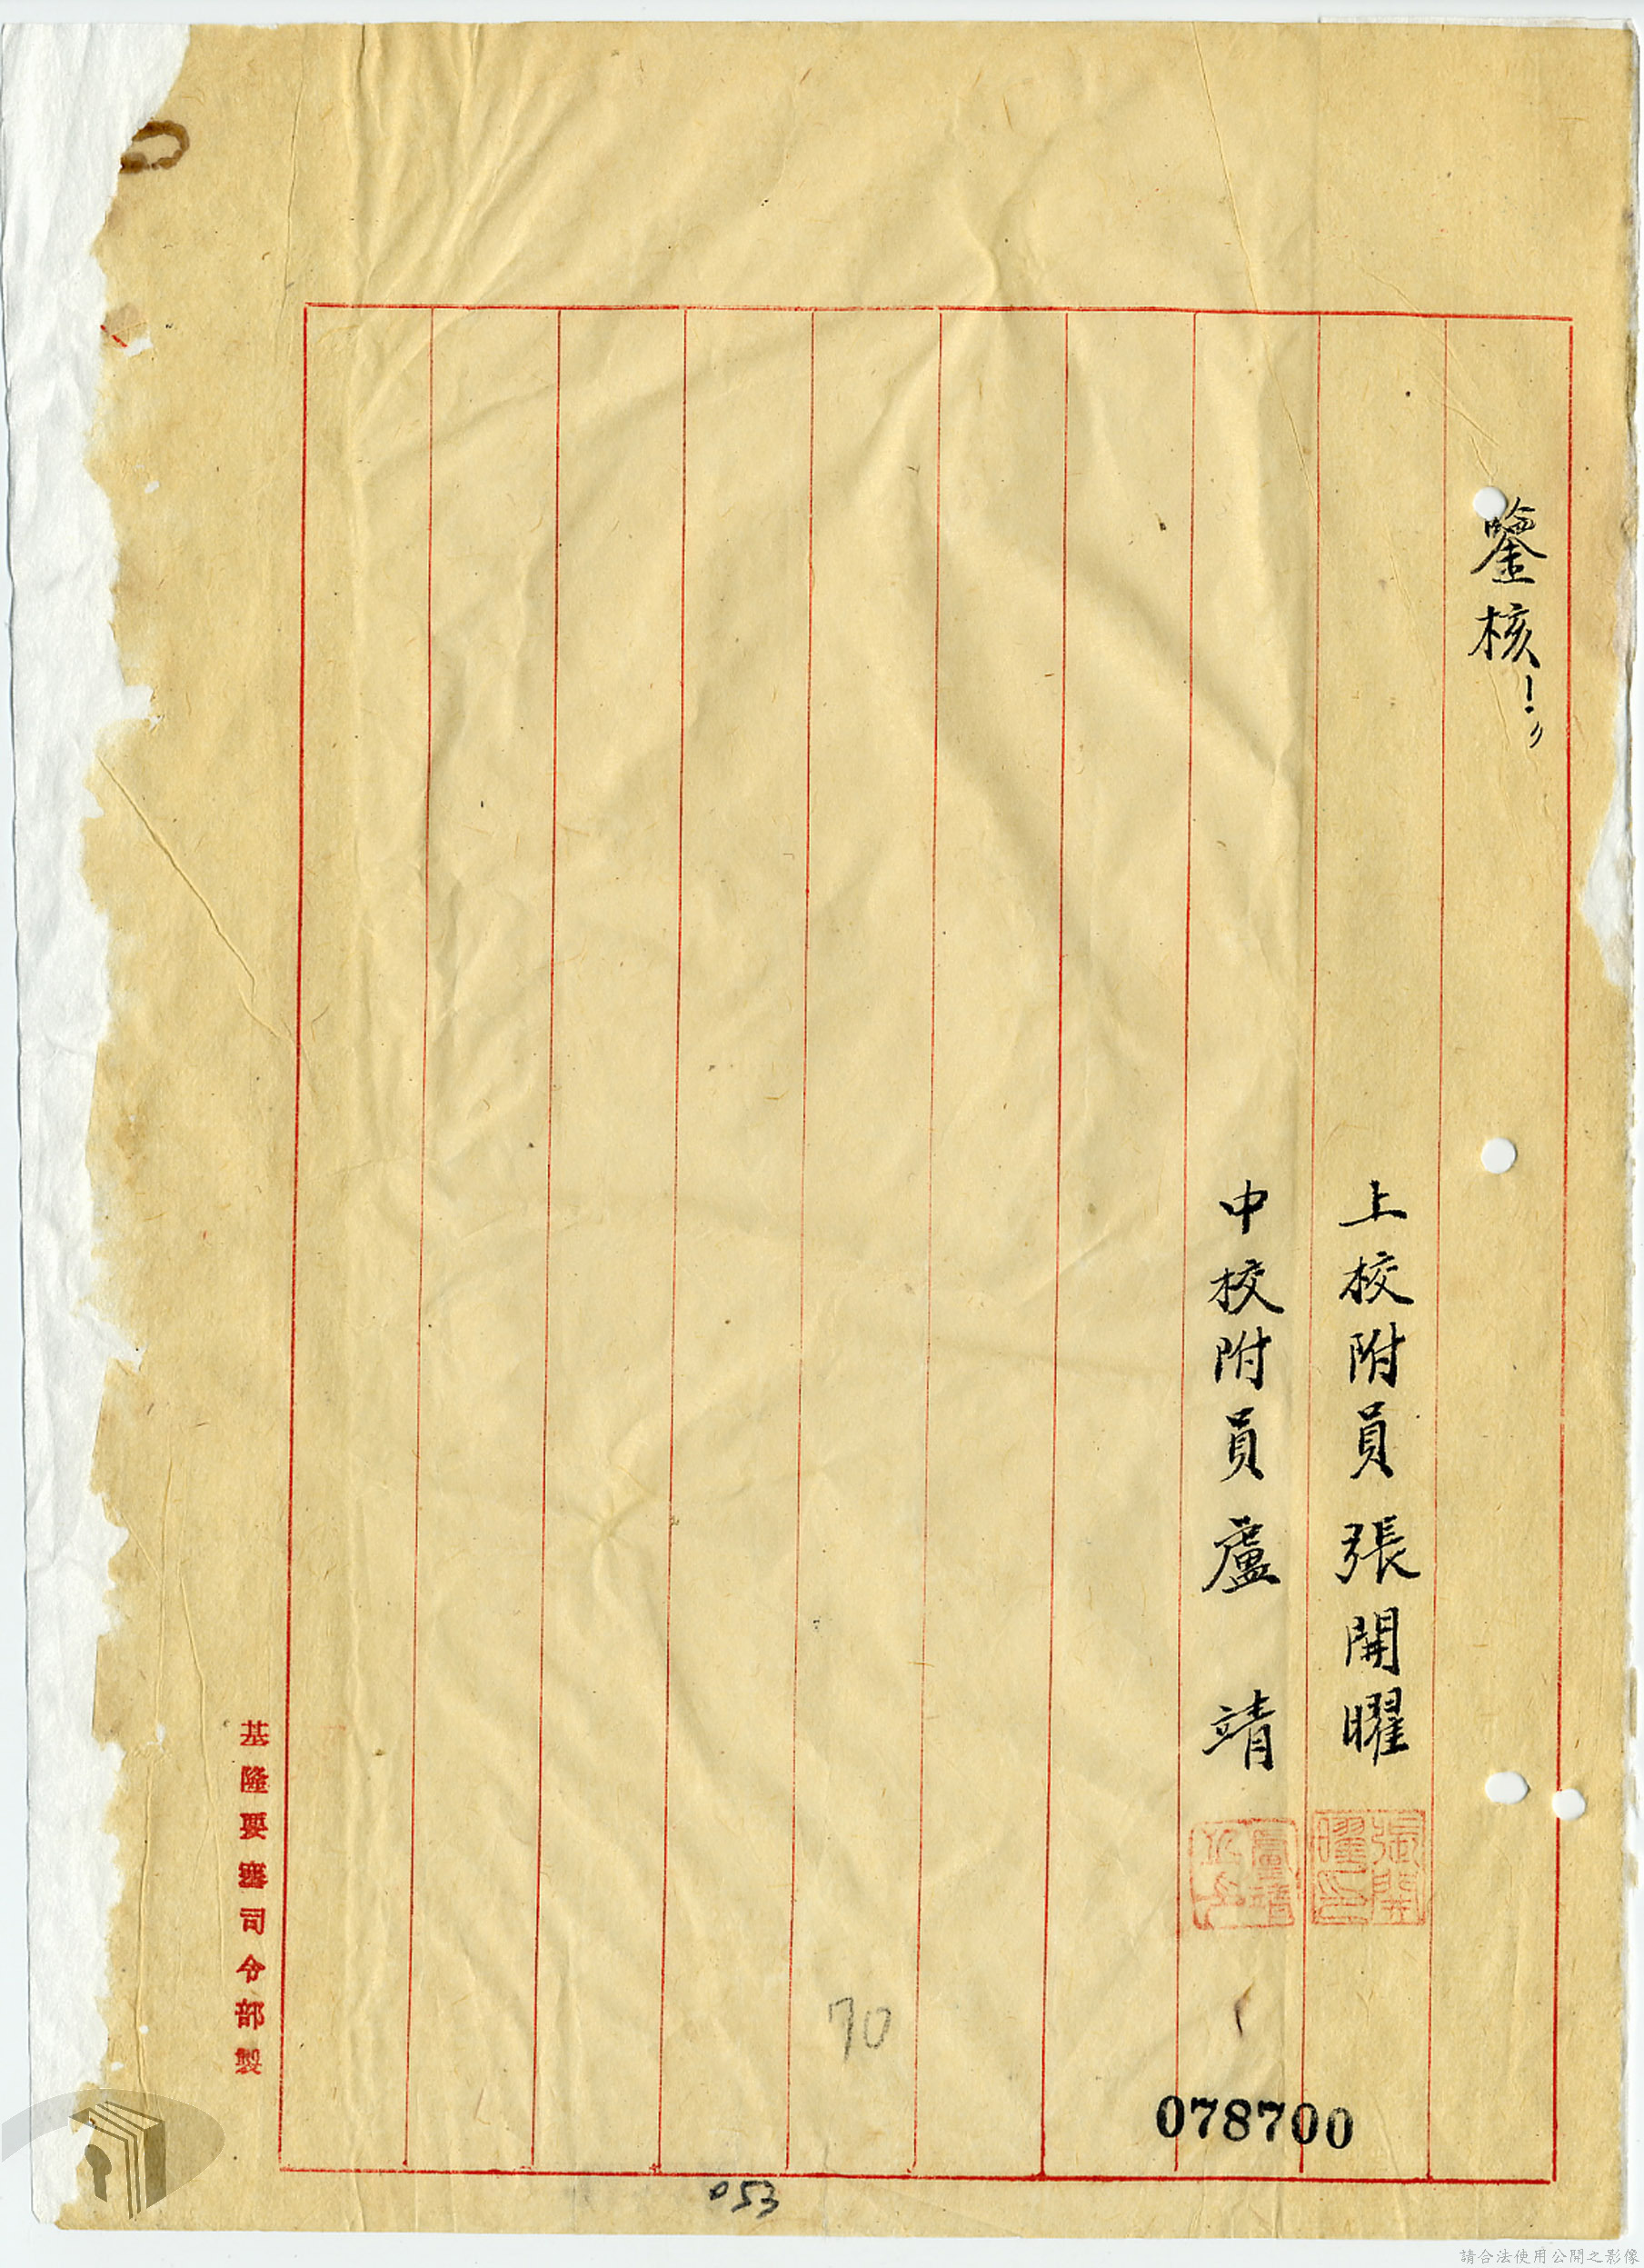 鑒核！〃
上校附員張開曜
張開曜印
中校附員盧靖
盧靖
70
078700
053
基隆要塞司令部製
請合法使用公開之影像